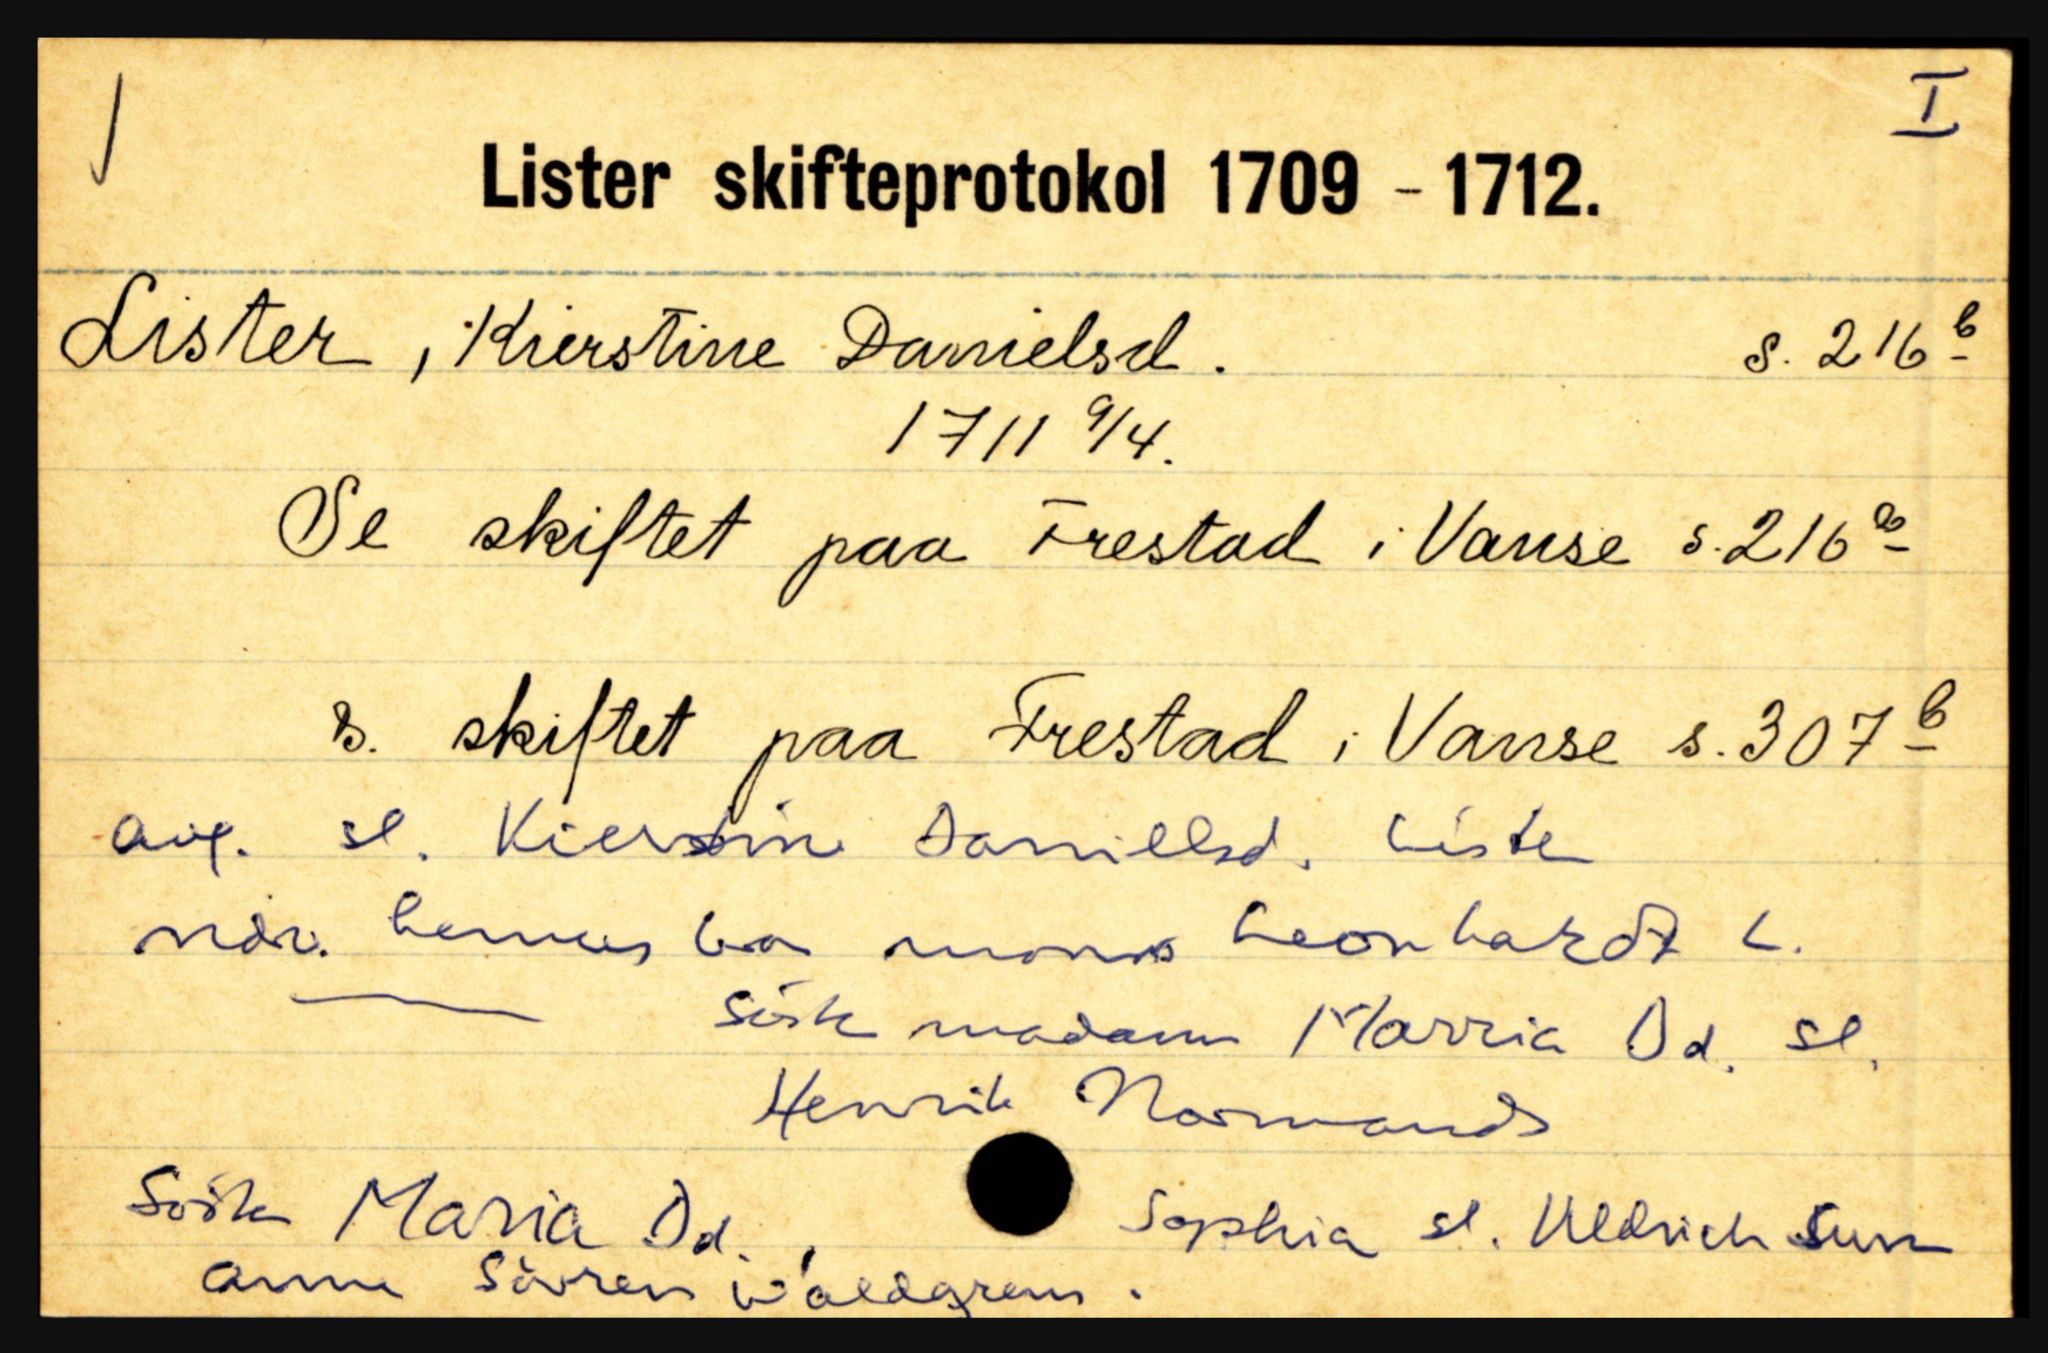 I
Lister skifteprotokol 1709 - 1712.
Lister, Kierstine Danielsd. s. 216 b
1711 9/4.
Se skiftet paa Frestad i Vanse s. 216 a
s. skiftet paa Frestad i Vanse s. 307 b
avg. sl. Kierstine Daniellsd. Lister
ndv. hennes bror Leonhardt L.
Søster madam Marria Dd. sl.
Henrik Normands
Søster Maria Dd., Sophia sl. Uldrich Sum
Anne Sövren Waldgrens.